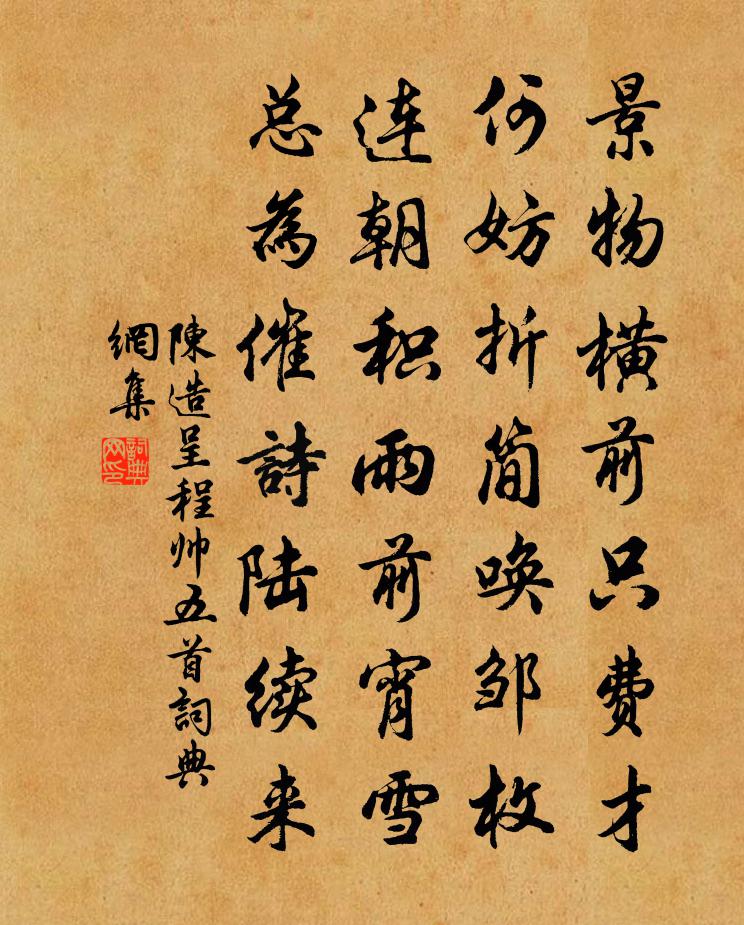 景物横前只费才
何妨折简唤邹枚
连朝积雨前宵雪
总为催詩陆续来
陳造呈程帅五首詞典
網集
詞典
网印